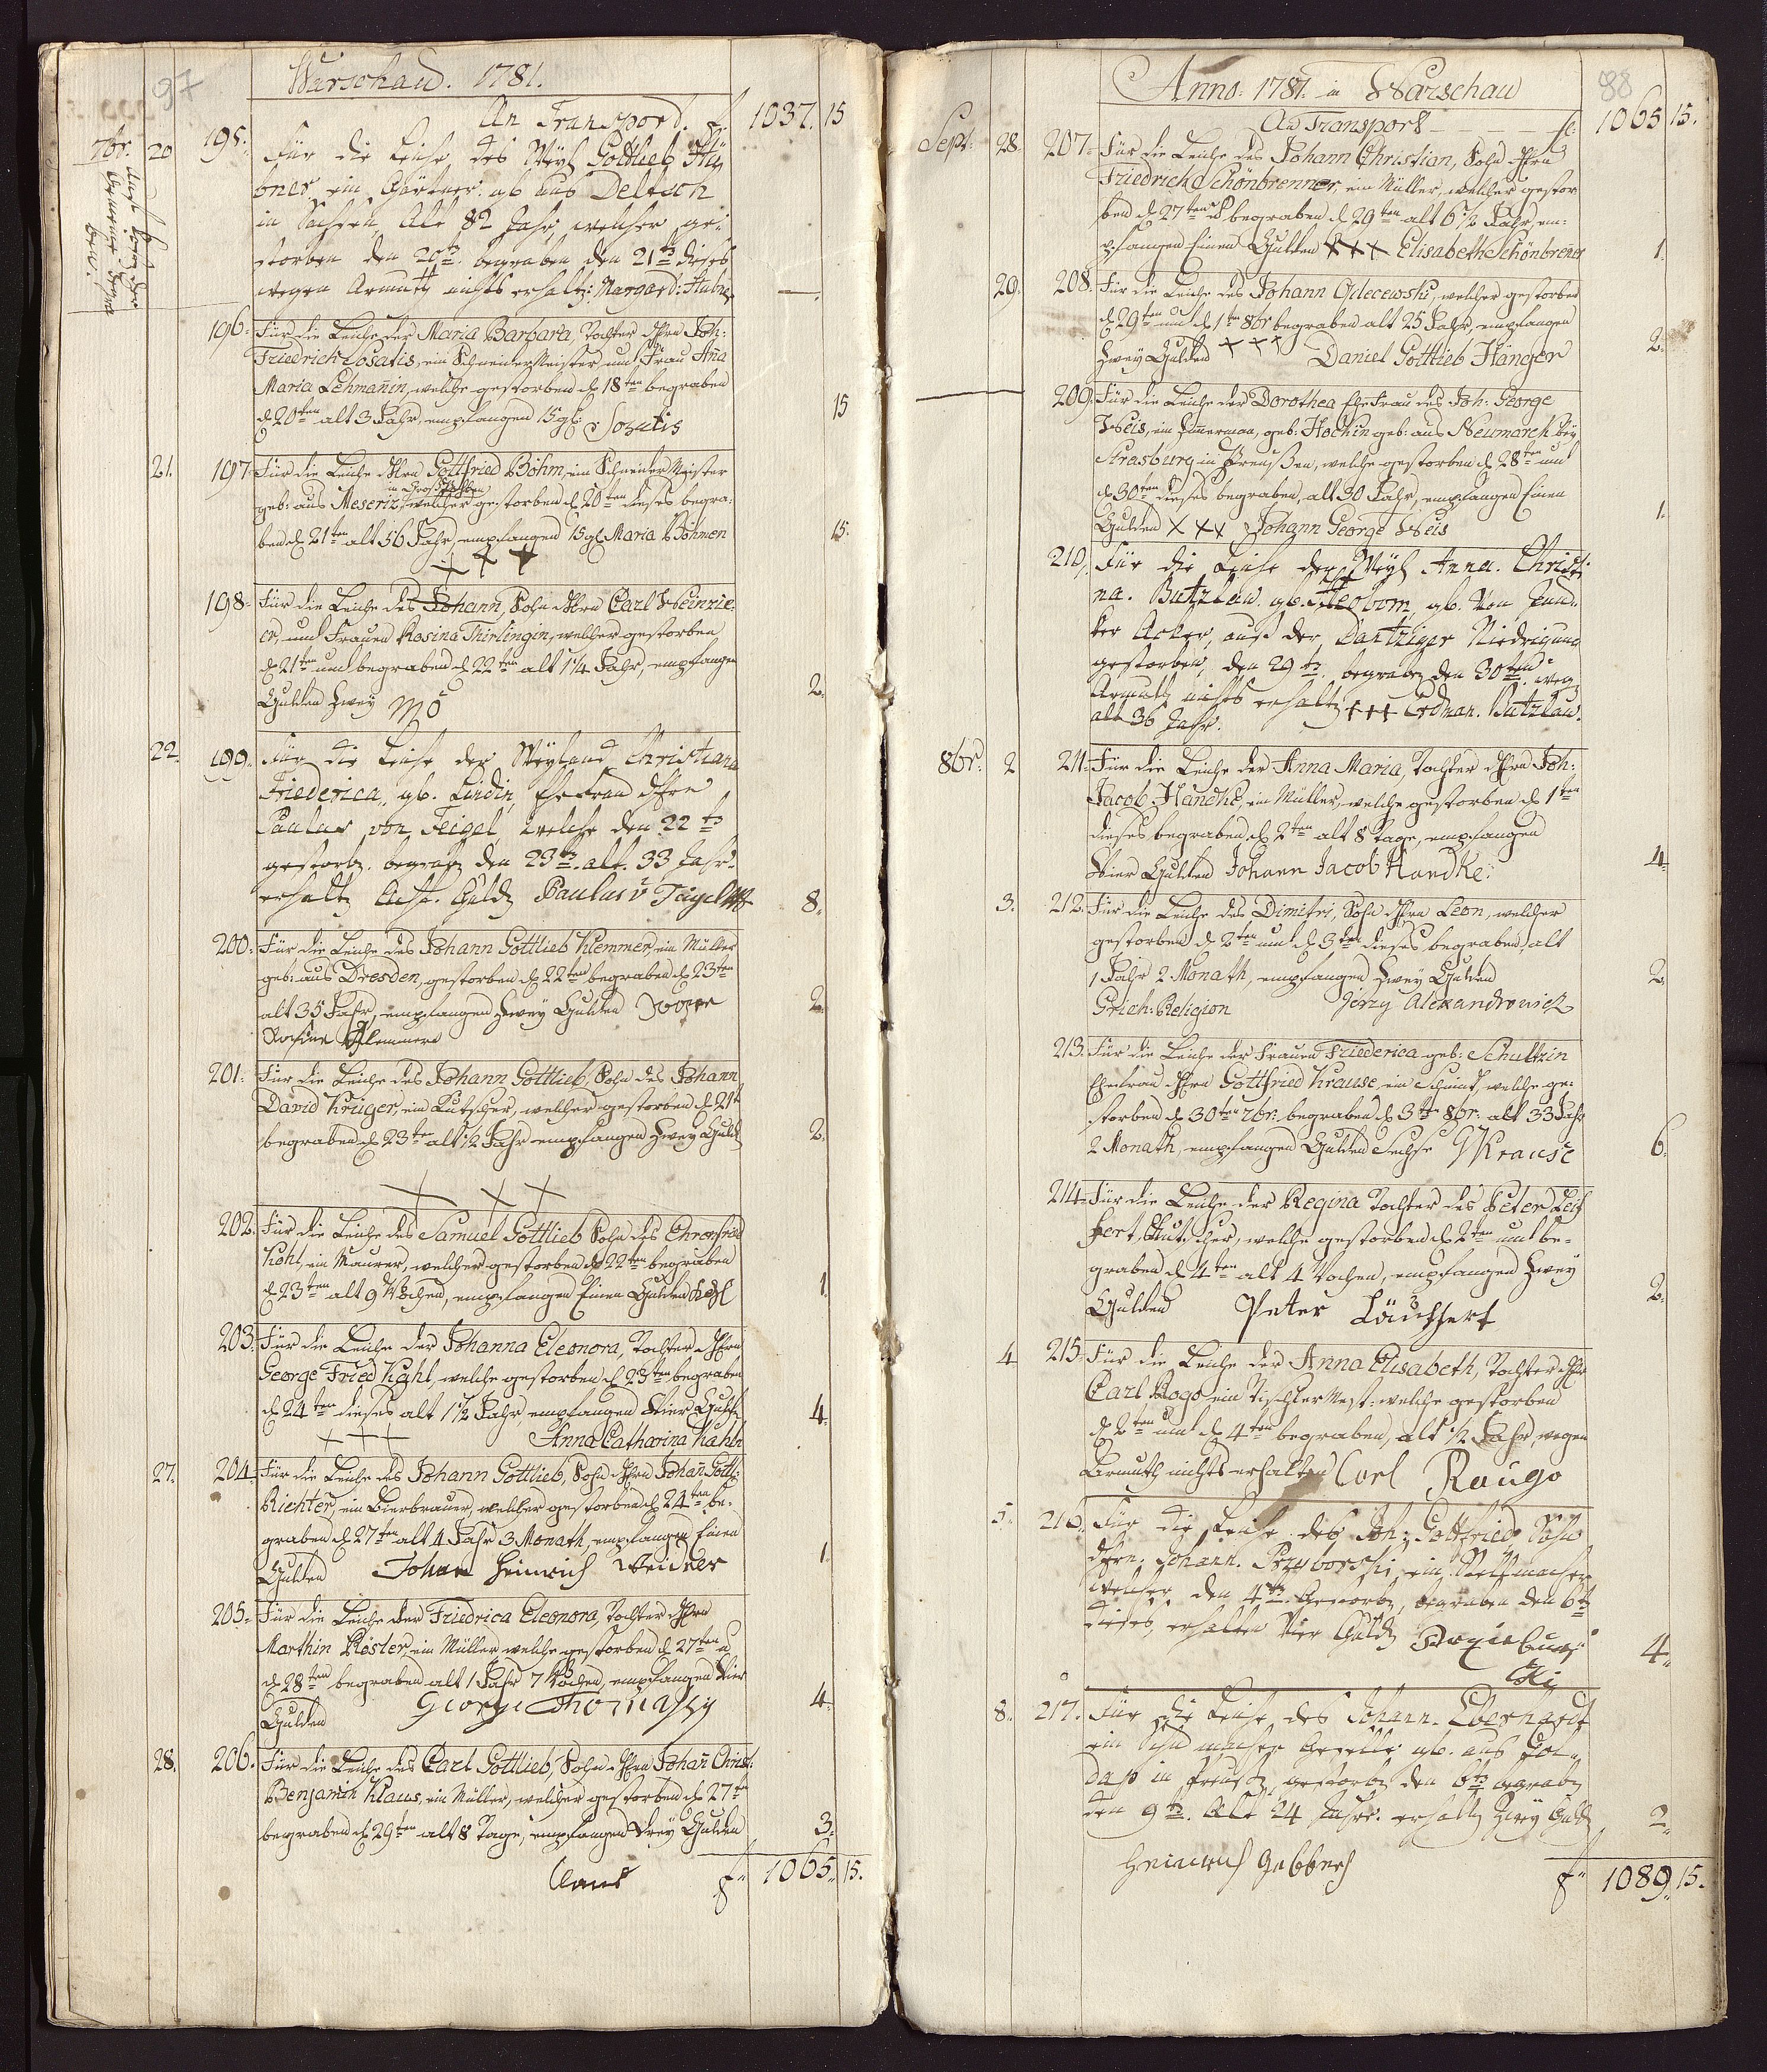 97
Warschau. 1781.
An Transport. f. 1037. 15
7br. 20 195. Für die Leiche des Weyl Gottlieb Hü
bner ein Gärtner gb aus Deltsch
in Sachsen, Alt 82 Jahr, welcher ge:
storben den 20tn. begraben den 21tn dieses
wegen Armuth nichts erhaltn: Margard: Hubner —
196. Für die Leiche der Maria Barbara, Tochter Hrn Joh:
Friedrich Cosatis, ein Schneider Meister und Frau Aña
Maria Lehmañin, welche gestorben d 18ten begraben
d 20ten alt 3 Jahr, empfangen 15 gl: Sozutis 15
21. 197. Für die Leiche Hrn Gottfried Böhm, ein Schneider Meister
in Groß Pohlen
geb: aus Meseriz, welcher gestorben d 20ten dieses begra:
ben d 21ten alt 56 Jahr, empfangen 15 gl Maria Böhmen 15.
+ + +
198. Für die Leiche des Johann, Sohn Hrn Carl Weinrie:
er, und Frauen Rosina Thirlingin, welcher gestorben
d 21ten und begraben d 22ten alt 1 1/4 Jahr, empfangen
Gulden Zwey 2.
22. 199. Für die Leiche der Weyland Christiana
Friederica, gb. Lindin, Ehefrau Hrn
Paulus von Teigel welche den 22tn
gestorbn. begrabn den 23tn. alt. 33 Jahr.
erhaltn Acht. Guldn Paulus v Taygel 8.
200. Für die Leiche des Johann Gottlieb Klemmer, ein Müller
geb: aus Dresden, gestorben d 22ten begraben d 23ten
alt 35 Jahr, empfangen Zwey Gulden 2.
Rosine Klemmern
201. Für die Leiche des Johann Gottlieb, Sohn des Johann
David Krüger, ein Kutscher, welcher gestorben d 21t
begraben d 23te alt 1/2 Jahr empfangen Zwey Guld 2.
+ + +
202. Für die Leiche des Samuel Gottlieb Sohn des Ehrenfried
Kohl, ein Maurer, welcher gestorben d 22ten begraben
d 23ten alt 9 Wochen, empfangen Einen Gulden Kohl 1.
203. Für die Leiche der Johanna Eleonora, Tochter Hrn
George Fried Kahl, welche gestorben d 23ten begraben
d 24ten dieses alt 1 1/2 Jahr empfangen Vier Guld 4.
+ + + Anna Catharina Kahln
27. 204. Für die Leiche des Johann Gottlieb, Sohn Hrn Johañ Gottl:
Richter, ein Bierbrauer, welcher gestorben d 24ten be:
graben d 27ten alt 4 Jahr 3 Monath, empfangen Einen
Gulden Johan Heinrich Weidner 1.
205. Für die Leiche der Friedrica Eleonora, Tochter Hrn
Marthin Rösler, ein Müller welche gestorben d 27ten u
d 28ten begraben alt 1 Jahr 7 Wochen, empfangen Vier
Gulden George Thomassy 4.
28. 206. Für die Leiche des Carl Gottlieb, Sohn Hrn Johañ Christ:
Benjamin Klaus, ein Müller, welcher gestorben d 27te
begraben d 29ten alt 8 Tage, empfangen Drey Gulden 3.
Claus f 1065. 15.
88
Anno: 1781. in Warschau
An Transport - - - - f: 1065 15.
Sept: 28. 207. Für die Leiche des Johann Christian, Sohn Hrn
Friedrich Schönbrenner, ein Müller, welcher gestor
ben d 27ten u begraben d 29ten alt 6 1/2 Jahr, em:
pfangen Einen Gulden +++ Elisabeth Schönbrener 1.
29. 208. Für die Leiche des Johann Odecewski, welcher gestorben
d 29ten und d 1ten 8br begraben alt 25 Jahr, empfangen
Zwey Gulden +++ Daniel Gottlieb Hänger 2.
209. Für die Leiche der Dorothea Ehefrau des Joh: George
Weis, ein Zimmerman, geb: Hockin geb: aus Neumarck bey
Strasburg in Preußen, welche gestorben d 28ten und
d 30ten dieses begraben, alt 30 Jahr, empfangen Einen
Gulden +++ Johann George Weis 1.
210. Für die Leiche der Weyl Anna. Christi
na. Butzlau. gb. gb. Von
ker Acker, aus der Dantziger Niedrigung
gestorben, den 29tn. begrabn den 30ten weg
Armuth nichts erhaltn +++ Erdman. Butzlau.
alt 36 Jahr.
8br. 2 211. Für die Leiche der Anna Maria, Tochter Hrn Joh:
Jacob Handke, ein Müller, welche gestorben d 1ten
dieses begraben d 2ten alt 8 Tage, empfangen
Vier Gulden Johann Jacob Handke. 4.
3. 212. Für die Leiche des Dimitri, Sohn Hrn Leon, welcher
gestorben d 2ten und d 3ten dieses begraben, alt
1 Jahr 2 Monath, empfangen Zwey Gulden 2.
Grich: Religion Jerzy Alexandrowicz
213. Für die Leiche der Frauen Friederica geb: Schultzin
Ehefrau Hrn Gottfried Krause, ein Schmidt, welche ge:
storben d 30ten 7br: begraben d 3te 8br: alt 33 Jahr
2 Monath, empfangen Gulden Sechse GKrause 6.
214. Für die Leiche der Regina Tochter des Peter Leich
hert, Kutscher, welche gestorben d 2ten und be-
graben d 4ten alt 4 Wochen, empfangen Zwey
Gulden Peter Läuchhert 2.
4. 215. Für die Leiche der Anna Elisabeth, Tochter Hrn
Carl Rogo ein Tischler Mest: welche gestorben
d 2ten und d 4ten begraben, alt 1/2 Jahr, wegen
Armuth nichts erhalten Carl Raugo
5. 216. Für die Leiche des Joh: Gottfried, Sohn
Hrn: Johann. Przyborski, ein Stellmacher,
welcher den 4tn. Gestorbn, begraben den 6tn
dieses, erhalten Vier Guldn 4.
8. 217. Für die Leiche des Johann. Eberhardt
ein Schumacher Geselle gb. aus Gol-
dap in Preusn, gestorbn den 6tn begrabn
den 9tn. Alt 24 Jahr. erhaltn Zwey Guldn 2.
Heinrich Gebbrch f 1089. 15.